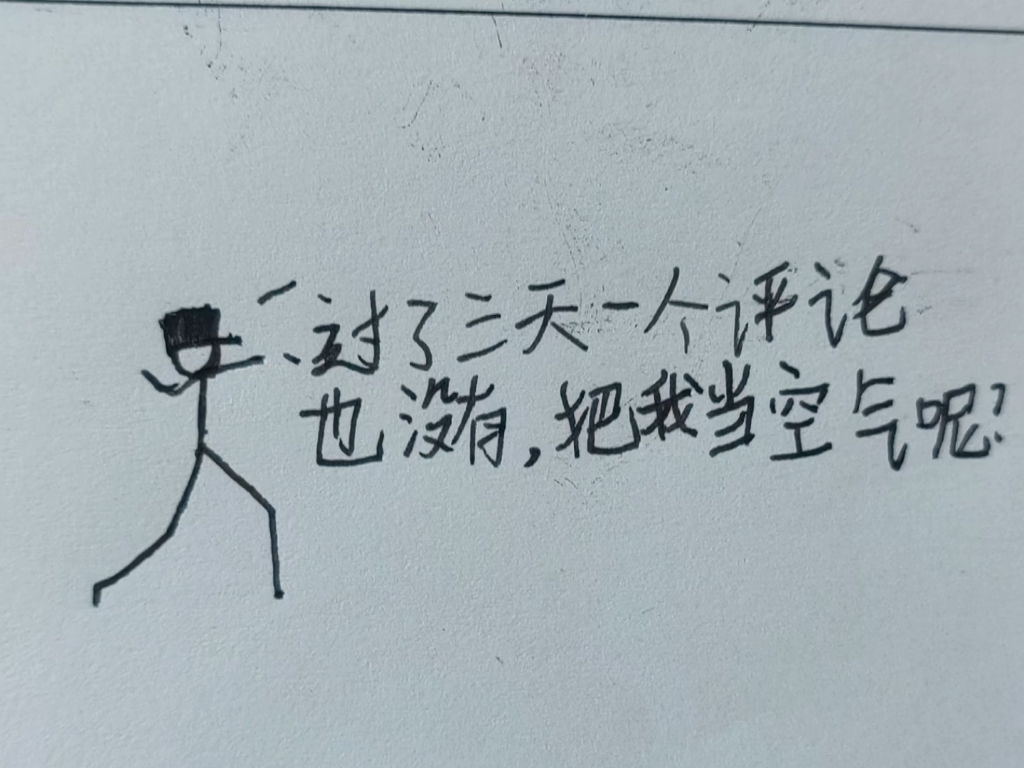 过了三天一个评论
也没有,把我当空气呢?